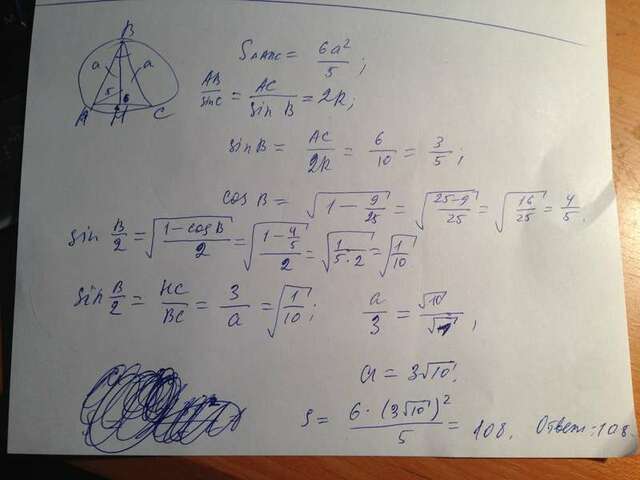 B
a a
5 6
A H C
S△ABC = 6a²/5 ;
AB/sin C = AC/sin B = 2R;
sin B = AC/2R = 6/10 = 3/5 ;
cos B = √(1 − 9/25) = √((25-9)/25) = √(16/25) = 4/5.
sin B/2 = √((1-cos B)/2) = √((1-4/5)/2) = √(1/(5·2)) = √(1/10)
sin B/2 = HC/BC = 3/a = √(1/10) ; a/3 = √10/√1 ;
a = 3√10.
S = 6·(3√10)²/5 = 108. Ответ: 108.